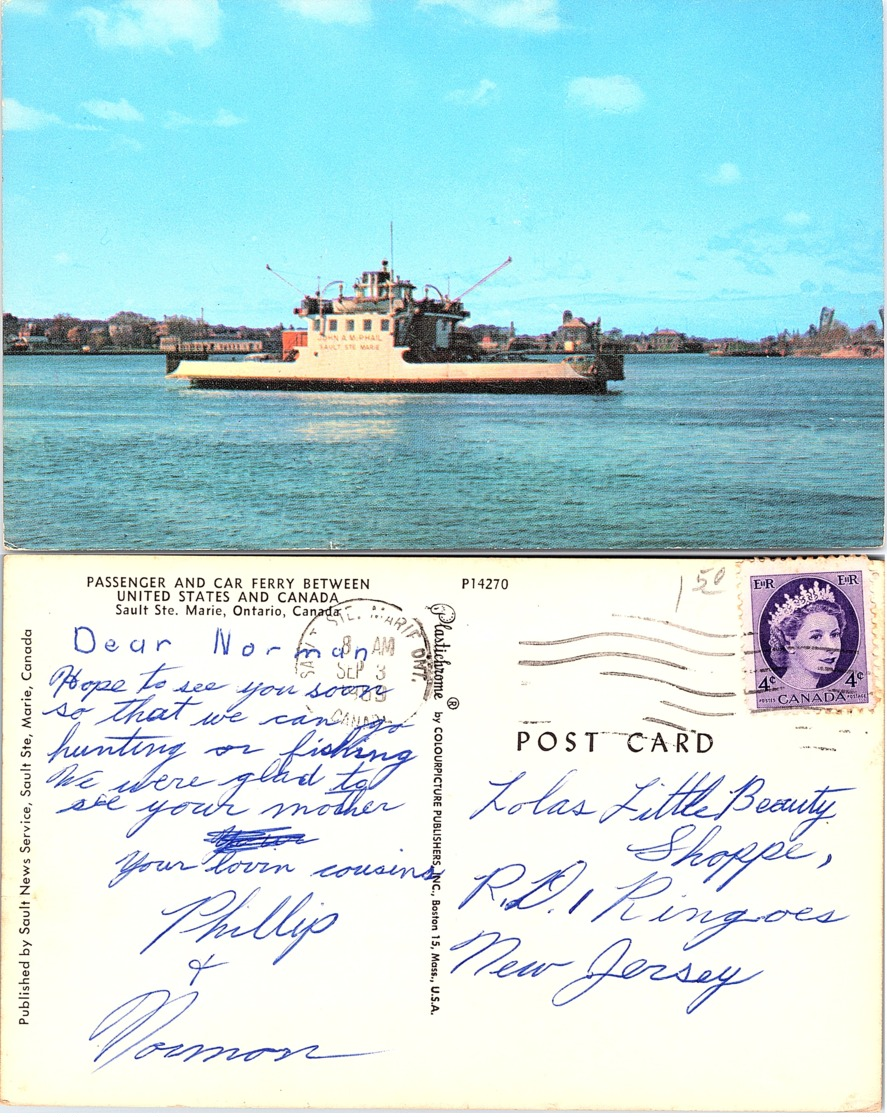 JOHN A. McPHAIL
SAULT STE. MARIE
PASSENGER AND CAR FERRY BETWEEN
UNITED STATES AND CANADA
Sault Ste. Marie, Ontario, Canada
P14270
1 50
E II R E II R
4¢ 4¢
POSTES CANADA POSTAGE
STE. MARIE ONT.
8 AM
SEP 3
CANADA
POST CARD
Dear Norman
Hope to see you soon
so that we can go
hunting or fishing
We were glad to
see your mother
Your lovin cousins
Phillip
&
Norman
Lolas Little Beauty
Shoppe,
R.D. 1 Ringoes
New Jersey
Published by Sault News Service, Sault Ste, Marie, Canada
Plastichrome ® by COLOURPICTURE PUBLISHERS, INC., Boston 15, Mass., U.S.A.